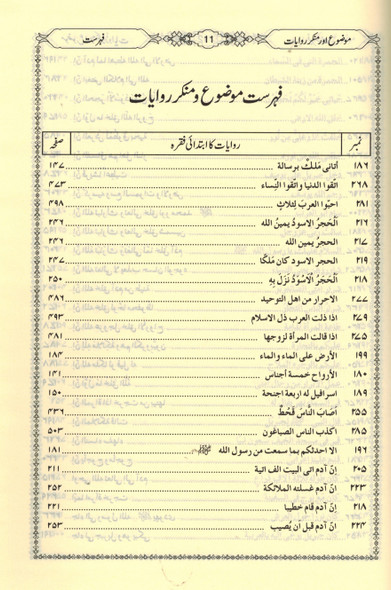 موضوع اور منکر روایات 11 فہرست
فہرست موضوع و منکر روایات
نمبر روایات کا ابتدائی فقرہ صفحہ
۱۸۶ أتانی مَلَكٌ برسالة ۱۴۷
۲۶۸ اتَّقوا الدنیا واتَّقوا النِّساء ۴۷۳
۲۸۱ احبّوا العربَ لِثلاثٍ ۴۹۸
۲۱۶ اَلْحَجَرُ الاسودُ یمینُ الله ۲۴۶
۲۱۷ الحجرُ یمین الله ۲۴۶
۲۱۹ الحجر الاسود كان مَلَكًا ۲۴۷
۲۱۸ اَلْحَجَرُ الْاَسْوَدُ نَزَلَ بِهِ ۲۵۰
۲۷۷ الاحرار من اهل التوحید ۴۸۶
۲۷۹ اذا ذلت العرب ذل الاسلام ۴۹۳
۲۷۵ اذا قالت المرأة لزوجها ۴۸۱
۱۹۹ الأرض علی الماء والماء ۱۸۴
۱۸۰ الأرواح خمسة أجناس ۱۴۱
۱۸۹ اسرافیل له اربعة اجنحة ۱۵۰
۲۵۵ اَصَابَ النَّاسَ قَحطٌ ۴۳۶
۲۸۵ اكذب الناس الصباغون ۵۰۳
۱۹۶ الا احدثكم بما سمعت من رسول الله ﷺ ۱۸۱
۲۰۵ اِنَّ آدم اتی البیت الف اتیة ۲۱۱
۲۲۳ اِنَّ آدم غسلته الملائكة ۲۵۲
۲۱۸ اِنَّ آدم قام خطیبا ۲۲۱
۲۲۴ اِنَّ آدم قبل ان یُصیب ۲۵۳